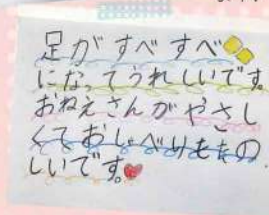 足がすべすべ
になってうれしいです。
おねえさんがやさし
くておしゃべりもたの
しいです。